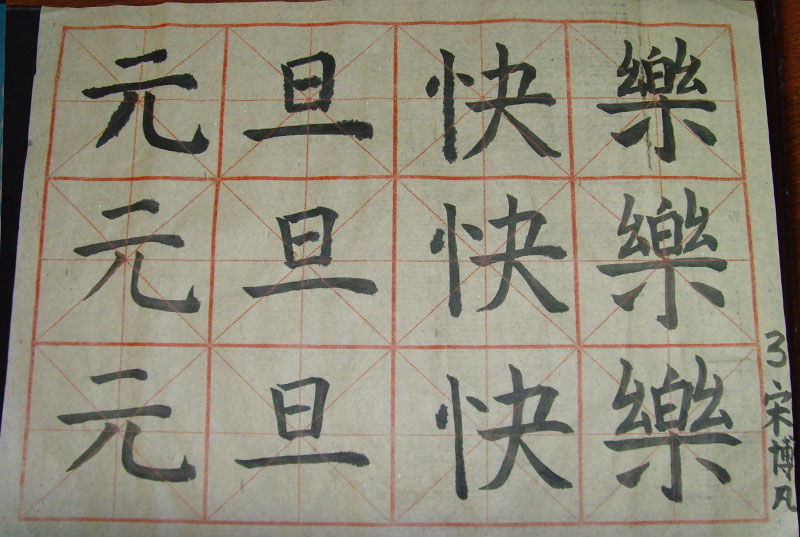 元旦快樂
元旦快樂
元旦快樂
3宋博凡